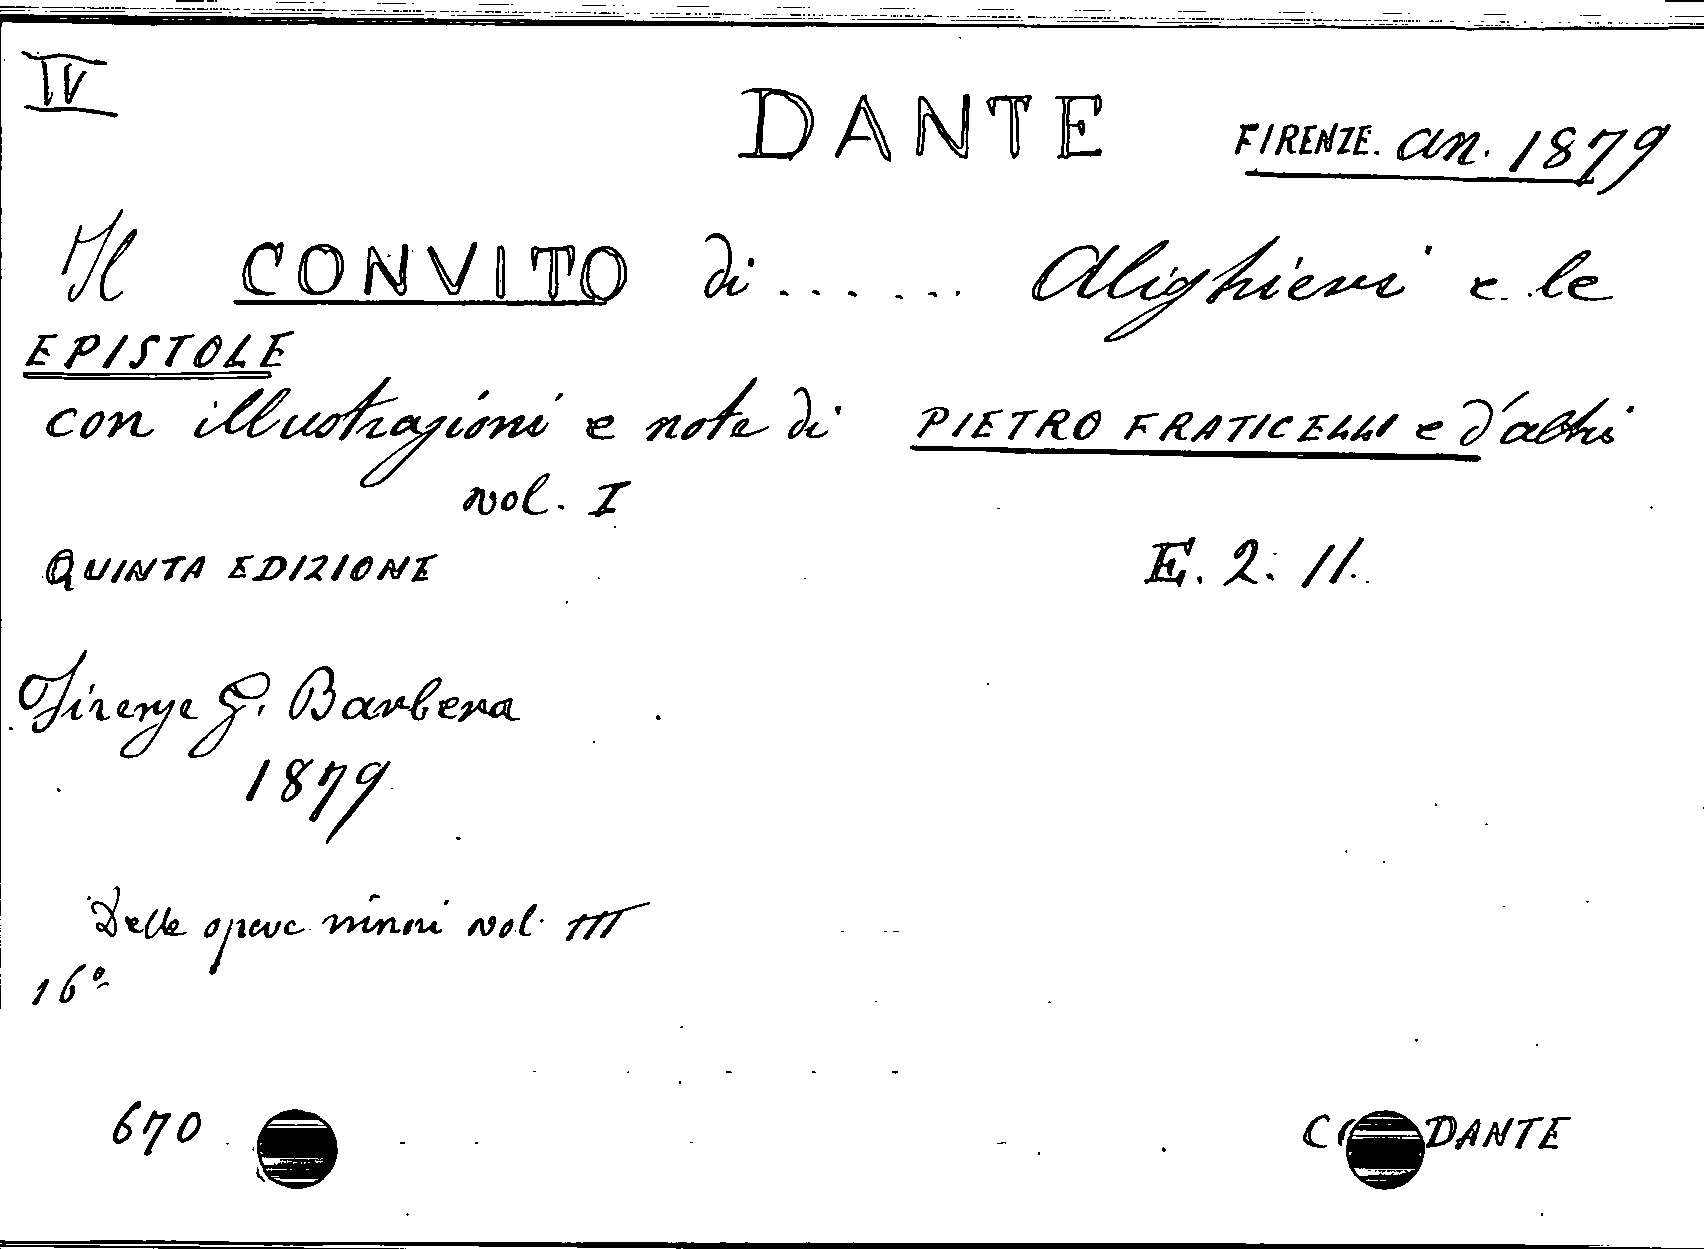 IV
DANTE FIRENZE. an. 1879
Il CONVITO di ...... Alighieri e le
EPISTOLE
con illustrazioni e note di PIETRO FRATICELLI e d'altri
vol. I
QUINTA EDIZIONE E. 2. 11.
Firenze G. Barbera
1879
Delle opere minori vol. III
16º
670 DANTE